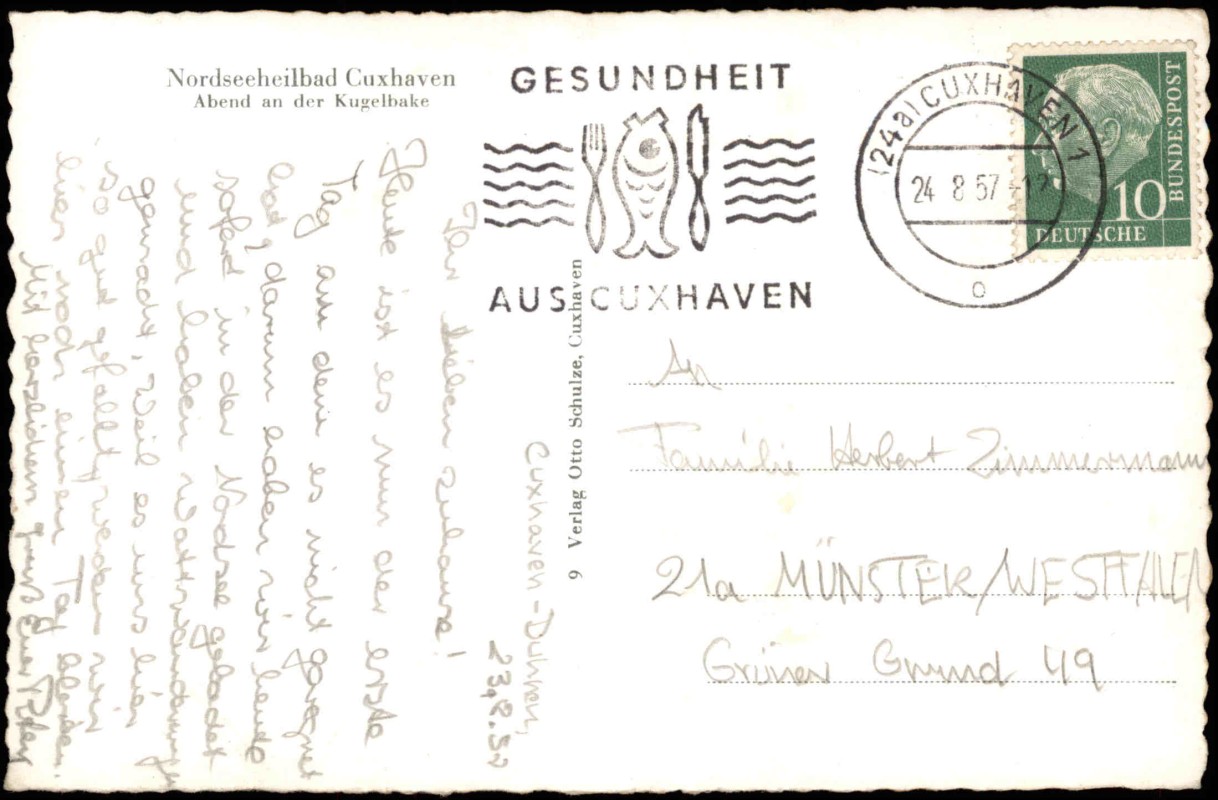 Nordseeheilbad Cuxhaven
Abend an der Kugelbake
GESUNDHEIT
AUS CUXHAVEN
(24a) CUXHAVEN 1
24 8 57 -12
o
10
DEUTSCHE
BUNDESPOST
9 Verlag Otto Schulze, Cuxhaven
Cuxhaven-Duhnen,
23.8.57
Ihr lieben Zuhause!
Heute ist es nun der erste
Tag an dem es nicht geregnet
hat, darum haben wir heute
sofort in der Nordsee gebadet
und haben Wattwanderung
gemacht, Weil es uns hier
so gut gefällt, werden wir
hier noch einen Tag bleiben.
Mit herzlichem gruß Euer Peter
An
Familie Herbert Zimmermann
21a MÜNSTER/WESTFALEN
Grüner Grund 49